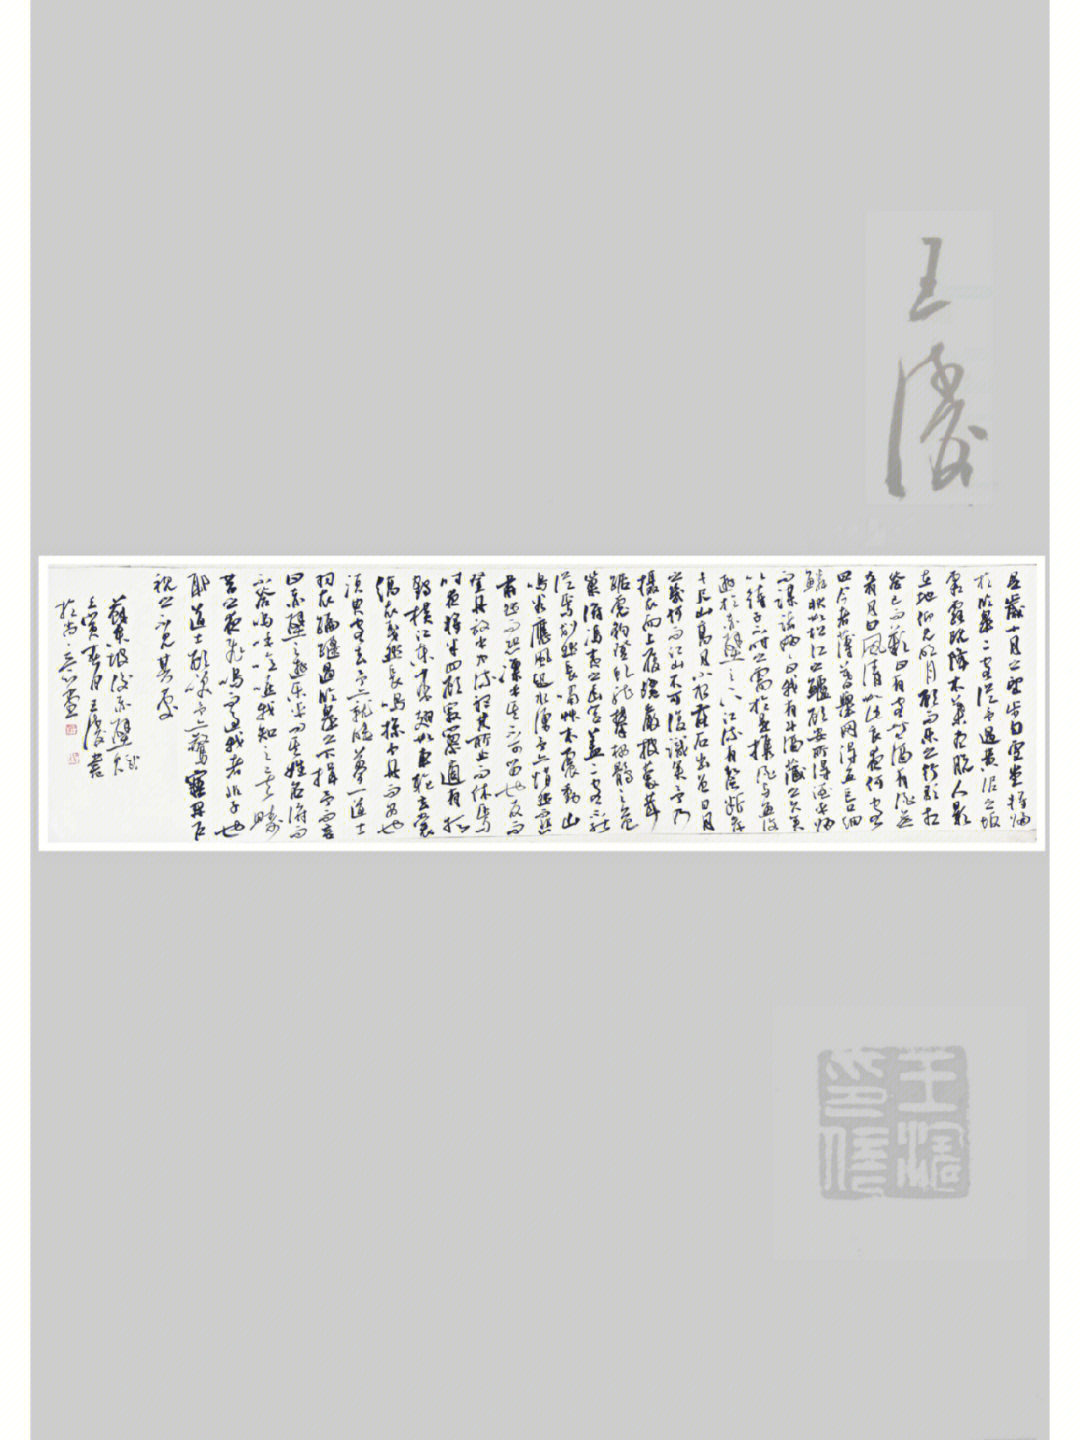 王濬
是歲十月之望步自雪堂將歸
於臨皋二客從予過黃泥之坂
霜露既降木葉盡脫人影
在地仰見明月顧而樂之行歌相
答已而歎曰有客無酒有酒無
肴月白風清如此良夜何客
曰今者薄暮舉網得魚巨口細
鱗狀如松江之鱸顧安所得酒乎歸
而謀諸婦婦曰我有斗酒藏之久矣
以待子不時之需於是攜酒與魚復
遊於赤壁之下江流有聲斷岸
千尺山高月小水落石出曾日月
之幾何而江山不可復識矣予乃
攝衣而上履巉巖披蒙茸
踞虎豹登虬龍攀栖鶻之危
巢俯馮夷之幽宮蓋二客不能
從焉劃然長嘯草木震動山
鳴谷應風起水湧予亦悄然而悲
肅然而恐凜乎其不可留也反而
登舟放乎中流聽其所止而休焉
時夜將半四顧寂寥適有孤
鶴橫江東來翅如車輪玄裳
縞衣戛然長鳴掠予舟而西也
須臾客去予亦就睡夢一道士
羽衣蹁躚過臨皋之下揖予而言
曰赤壁之遊樂乎問其姓名俯而
不答嗚呼噫嘻我知之矣疇
昔之夜飛鳴而過我者非子也
耶道士顧笑予亦驚寤開戶
視之不見其處
蘇東坡後赤壁賦
壬寅春月王濬書
於尚意
王濬印信